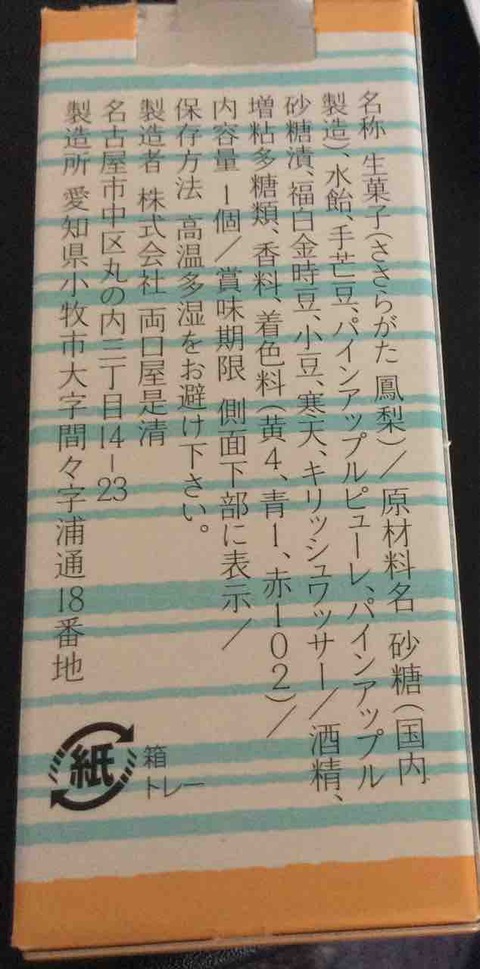 名称 生菓子(ささらがた 鳳梨)/原材料名 砂糖(国内
製造)、水飴、手芒豆、パインアップルピューレ、パインアップル
砂糖漬、福白金時豆、小豆、寒天、キリッシュワッサー/酒精、
増粘多糖類、香料、着色料(黄4、青1、赤102)/
内容量 1個/賞味期限 側面下部に表示/
保存方法 高温多湿をお避け下さい。
製造者 株式会社 両口屋是清
名古屋市中区丸の内三丁目14-23
製造所 愛知県小牧市大字間々字浦通18番地
紙
箱
トレー